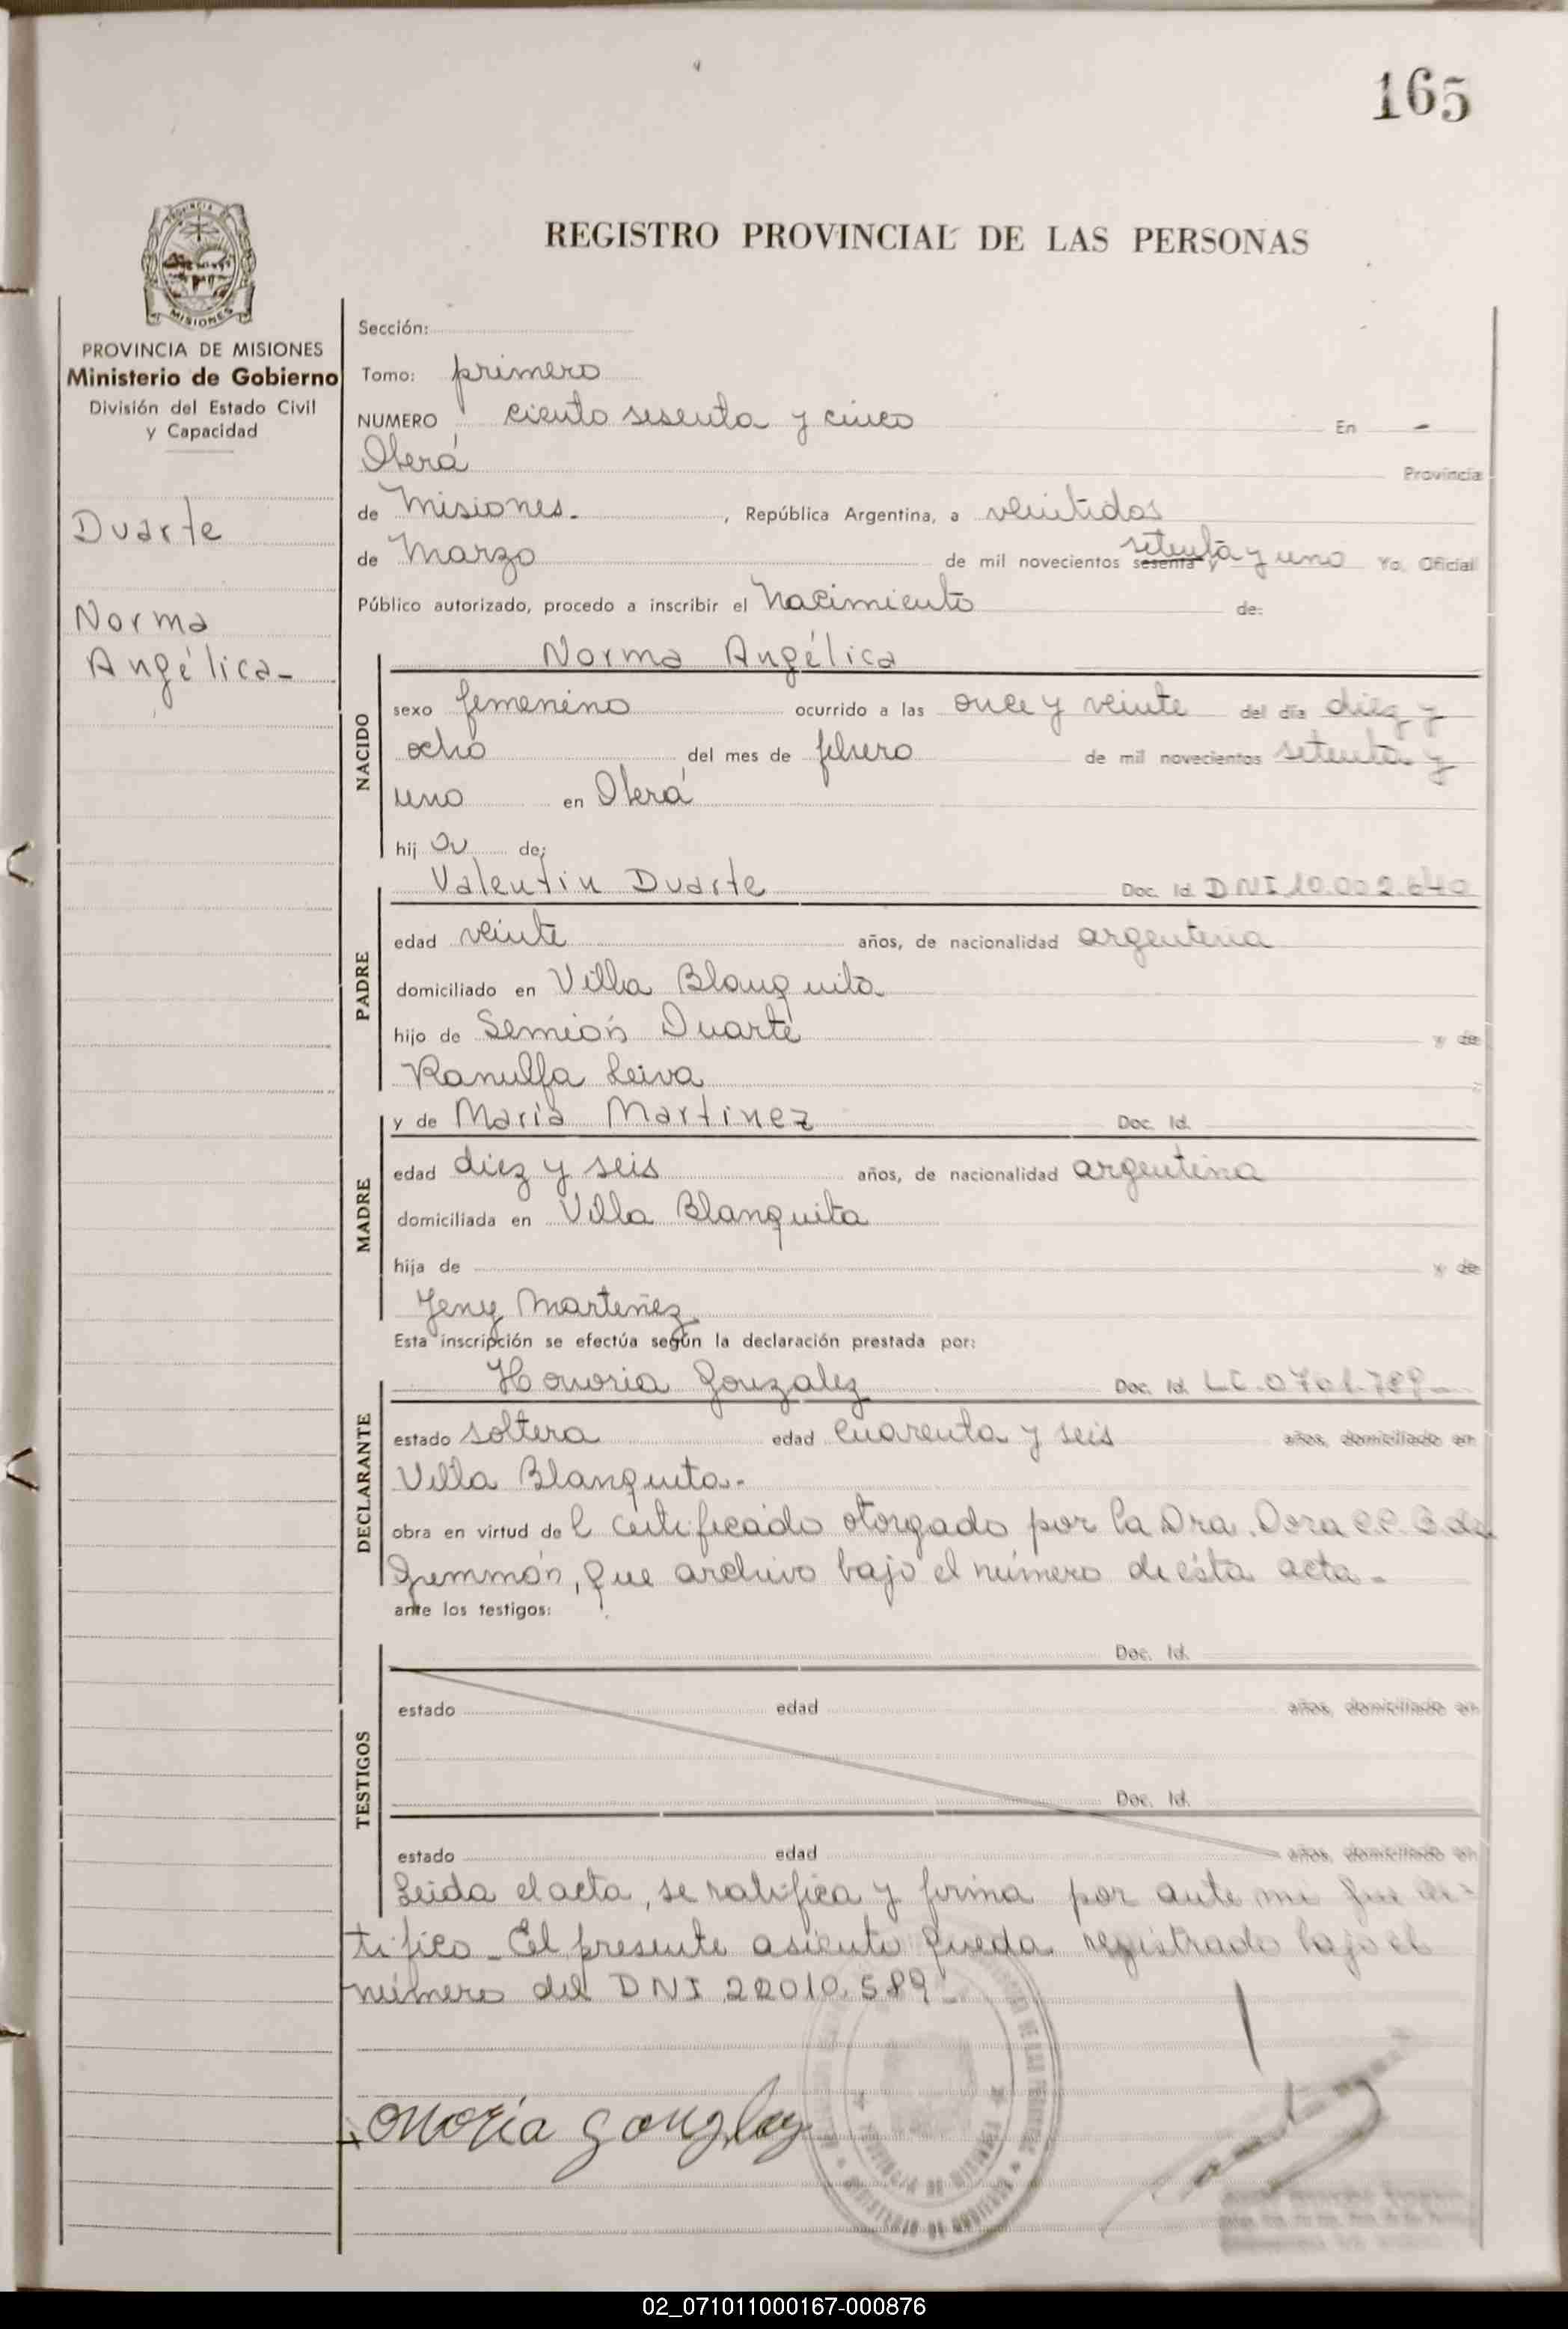 165
PROVINCIA DE
MISIONES
REGISTRO PROVINCIAL DE LAS PERSONAS
PROVINCIA DE MISIONES
Ministerio de Gobierno
División del Estado Civil
y Capacidad
Duarte
Norma
Angélica-
Sección:
Tomo: primero
NUMERO ciento sesenta y cinco En -
Oberá Provincia
de Misiones. , República Argentina, a veintidos
de Marzo de mil novecientos sesenta y setenta y uno Yo, Oficial
Público autorizado, procedo a inscribir el Nacimiento de:
NACIDO
Norma Angélica
sexo femenino ocurrido a las once y veinte del día diez y
ocho del mes de febrero de mil novecientos setenta y
uno en Oberá
hij a de:
PADRE
Valentin Duarte Doc. Id. DNI 10.002.640
edad veinte años, de nacionalidad argentina
domiciliado en Villa Blanquita
hijo de Semión Duarte y de
Ranulfa Leiva
MADRE
y de María Martinez Doc. Id.
edad diez y seis años, de nacionalidad argentina
domiciliada en Villa Blanquita
hija de y de
Jeny Martinez
Esta inscripción se efectúa según la declaración prestada por:
DECLARANTE
Honoria Gonzalez Doc. Id. LC.0701.789-
estado soltera edad cuarenta y seis años, domiciliado en
Villa Blanquita.
obra en virtud de l certificado otorgado por la Dra. Dora
que archivo bajo el número de ésta acta-
ante los testigos:
TESTIGOS
Doc. Id.
estado edad años, domiciliado en
Doc. Id.
estado edad años, domiciliado en
Leida el acta, se ratifica y firma por ante mi que cer-
tifico_ El presente asiento queda registrado bajo el
número del DNI 22010.589-
PROVINCIA DE MISIONES
MINISTERIO DE GOBIERNO
onoria gonzlez
02_071011000167-000876